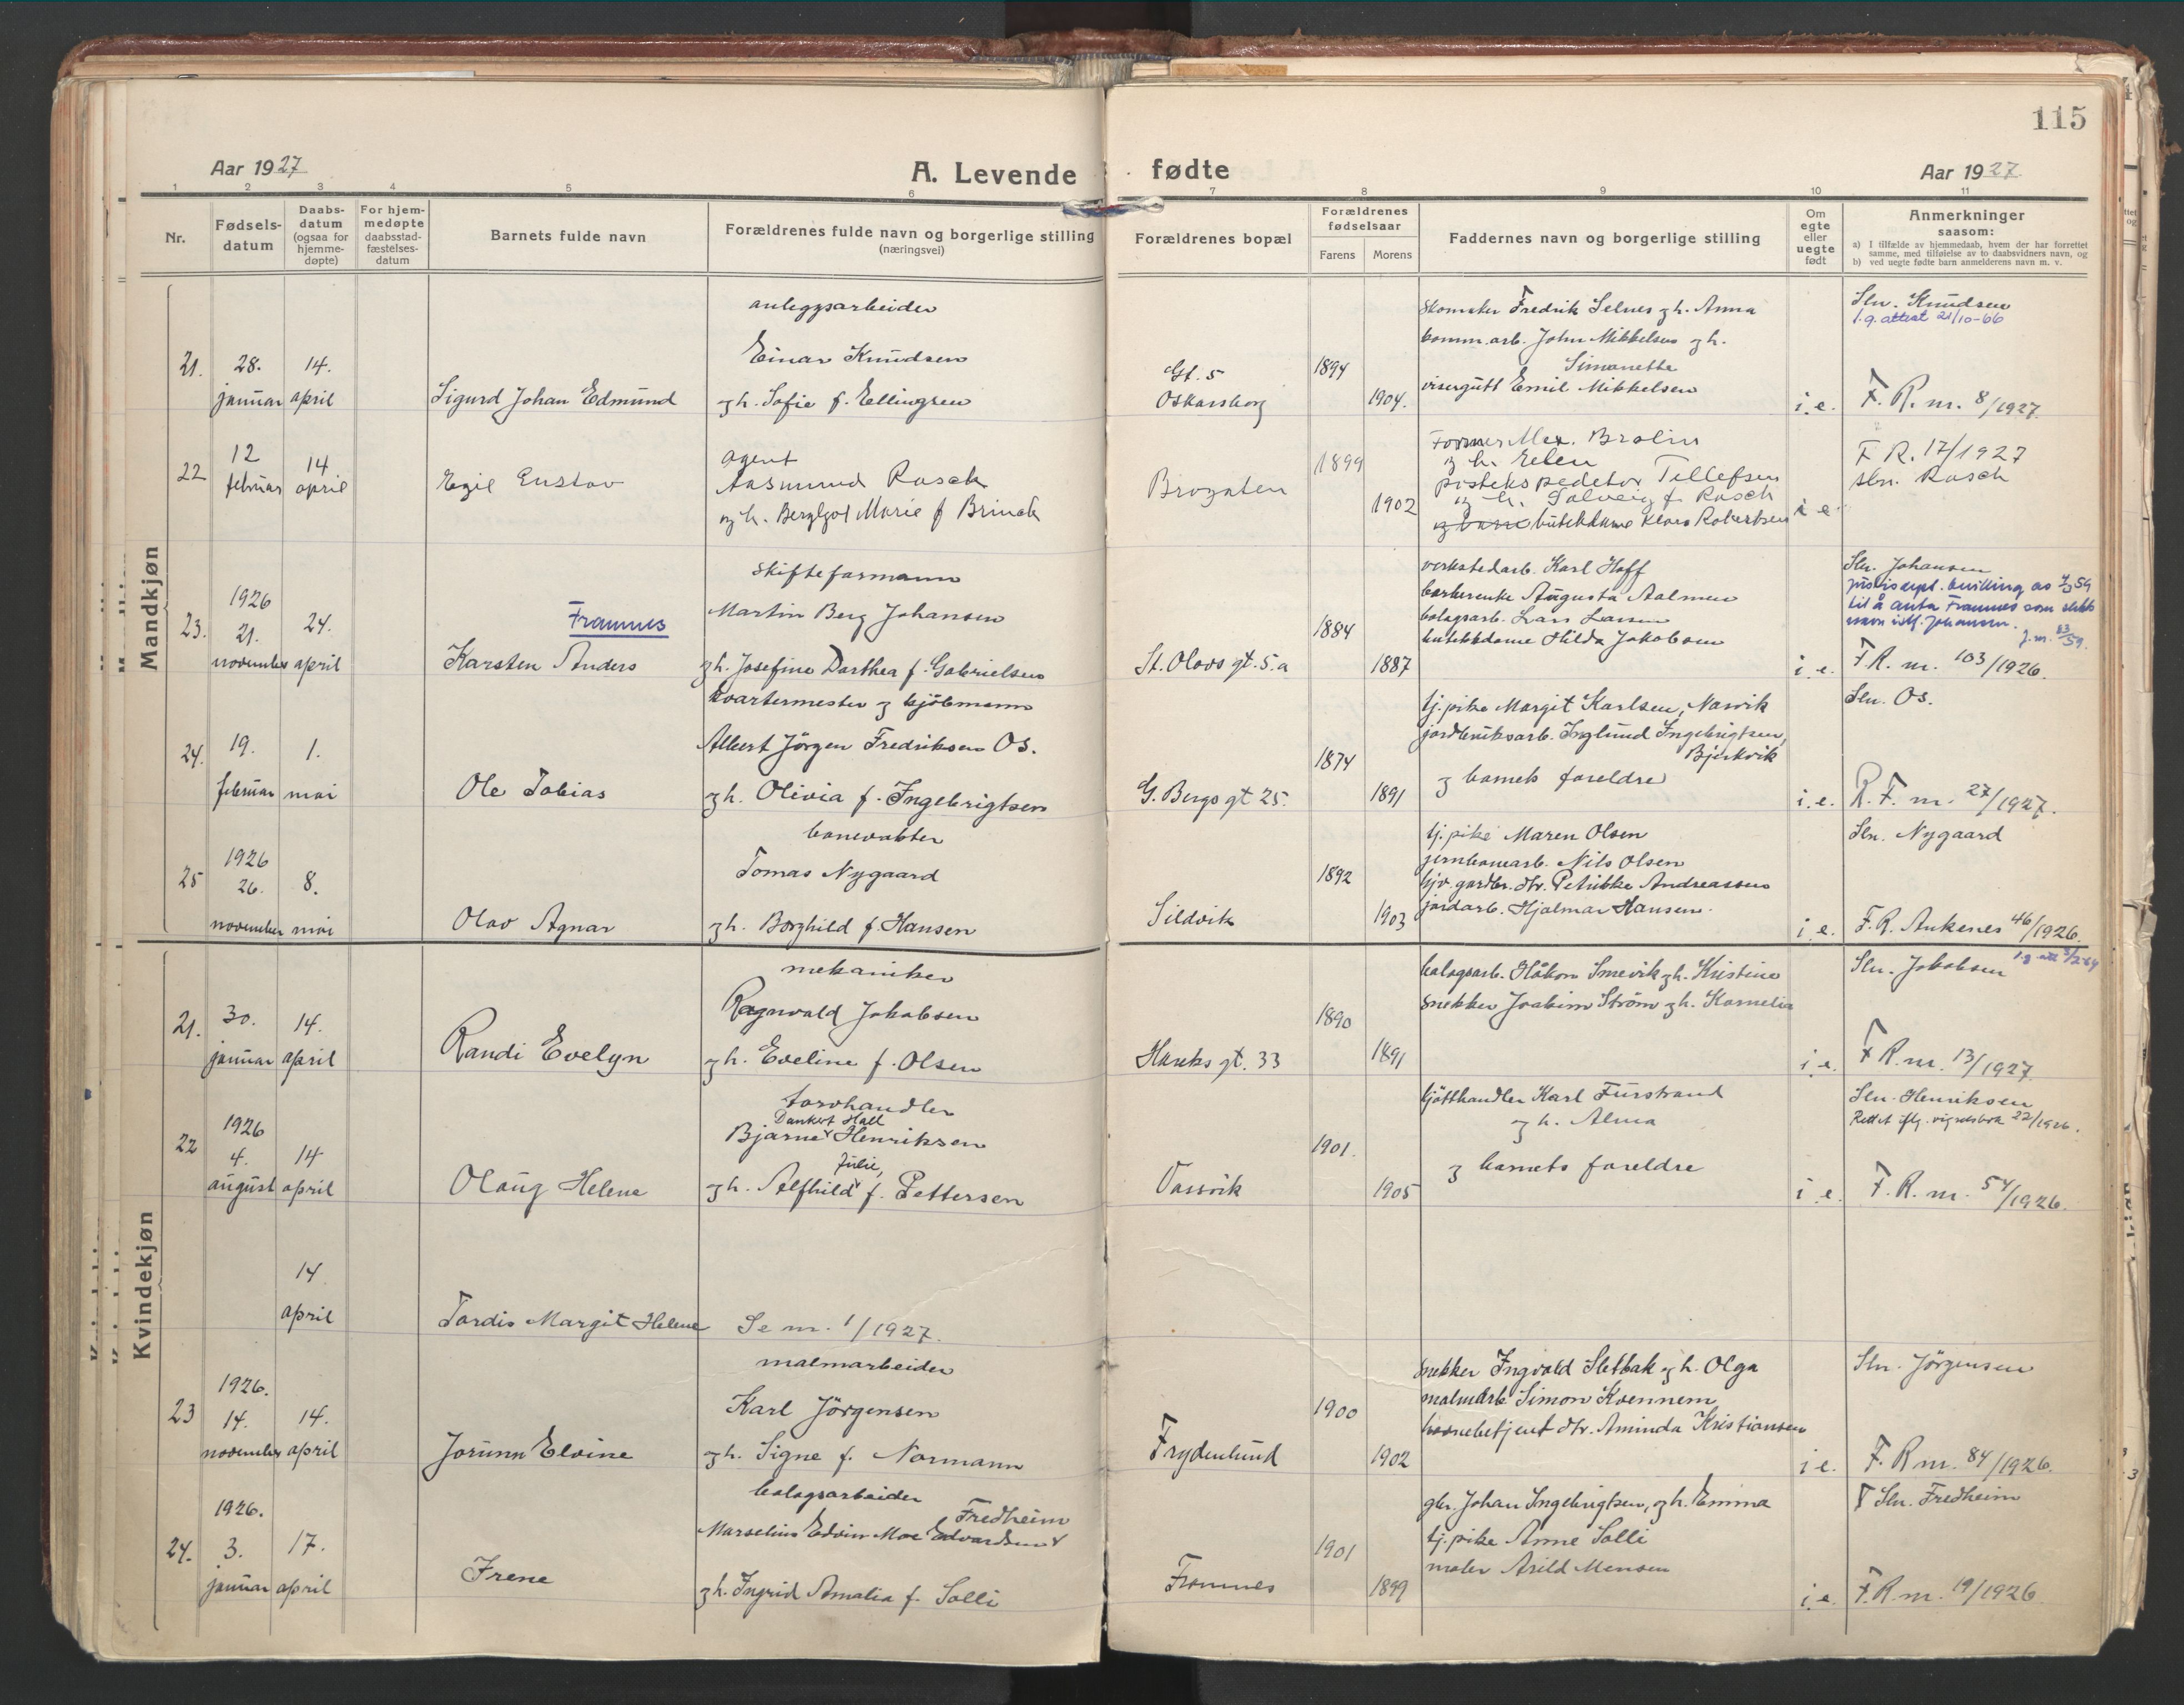 115
Aar 1927
A. Levende fødte
Aar 1927
1 2 3 4 5 6 7 8 9 10 11
Nr.
Fødsels-
datum
Daabs-
datum
(ogsaa for
hjemme-
døpte)
For hjem-
medøpte
daabsstad-
fæstelses-
datum
Barnets fulde navn
Forældrenes fulde navn og borgerlige stilling
(næringsvei)
Forældrenes bopæl
Forældrenes
fødselsaar
Farens Morens
Faddernes navn og borgerlige stilling
Om
egte
eller
uegte
født
Anmerkninger
saasom:
a) I tilfælde av hjemmedaab, hvem der har forrettet
samme, med tilføielse av to daabsvidners navn, og
b) ved uegte fødte barn anmelderens navn m. v.
Mandkjøn
21.
28.
januar
14.
april
Sigurd Johan Edmund
anleggsarbeider
Einar Knudsen
og h. Sofie f. Ellingsen
Gt. 5
Oskarsborg
1894
1904.
skomaker Fredrik Selnes og h. Anna
komm.arb. John Mikkelsen og h.
Simonette
visergutt Emil Mikkelsen
i. e.
Sln. Knudsen
l. g. attest 21/10-66
F. R. nr. 8/1927.
22
12
februar
14
april
Egil Gustav
agent
Aasmund Rasch
og h. Bergljot Marie f Brinck
Brogaten
1899
1902
Alex. Brolin
og h. Ellen
postekspeditør Tellefsen
og h. Solveig f. Rasch
butikkdame Klara Robertsen
i e
F R. 17/1927
sln. Rasch
23.
1926
21.
november
24.
april
Framnes
Karsten Anders
skifteformann
Martin Berg Johansen
og h. Josefine Dorthea f. Gabrielsen
St. Olavs gt. 5.a
1884
1887
verkstedarb. Karl Hoff
Augusta Aalmen
bolagsarb. Lars Larsen
butikkdame Hilda Jakobsen
i. e.
Sln. Johansen
til å anta Framnes som slekts
navn istf. Johansen.
F. R. nr. 103/1926.
24.
19.
februar
1.
mai
Ole Tobias
kvartermester og kjøbmann
Albert Jörgen Fredriksen Os.
og h. Olivia f. Ingebrigtsen
G. Bergs gt 25.
1874
1891
tj. pike Margit Karlsen, Narvik
jordbruksarb. Inglund Ingebrigtsen,
Bjerkvik
og barnets foreldre
i. e.
Sln. Os.
R. F. nr. 27/1927.
25
1926
26.
november
8.
mai
Olav Agnar
banevokter
Tomas Nygaard
og h. Borghild f. Hansen
Sildvik
1892
1903
tj. pike Maren Olsen
jernbanearb. Nils Olsen
gardbr. dtr. Petrikke Andreassen
jordarb. Hjalmar Hansen.
i. e.
Sln. Nygaard
F. R. Ankenes 46/1926.
Kvindekjøn
21.
30.
januar
14.
april
Randi Evelyn
mekaniker
Ragnvald Jakobsen
og h. Eveline f. Olsen
Hareks gt. 33
1890
1891
bolagsarb. Håkon Smevik og h. Kristine
snekker Joakim Ström og h. Kornelia
i. e.
Sln. Jakobsen
F R. nr. 13/1927
22
1926
4.
august
14
april
Olaug Helene
torvhandler
Dankert Hall
Bjarne Henriksen
Julie,
og h. Alfhild f. Pettersen
Vassvik
1901.
1905
kjötthandler Karl Furstrand
og h. Alma
og barnets foreldre
i e.
Sln. Henriksen
Rettet iflg. vigselsbok 22/1926.
F. R. nr. 54/1926.
14
april
Tordis Margit Helene
Se nr. 1/1927.
23
1926.
14.
november
14.
april
Jorunn Elvine
malmarbeider
Karl Jörgensen
og h. Signe f. Normann
Frydenlund
1900
1902
snekker Ingvald Sletbak og h. Olga
malmarb. Simon Kvennem
dtr. Aminda Kristiansen
i e.
Sln. Jörgensen
F. R nr. 84/1926.
24.
1926.
3.
januar
17.
april
Irene
bolagsarbeider
Fredheim
Marselius Edvin Moe Edvardsen
og h. Ingrid Amalia f. Solli
Framnes
1901
1899
gbr. Johan Ingebrigtsen, og h. Emma
tj. pike Anne Solli
maler Arild Monsen
i. e.
Sln. Fredheim
F. R. nr. 19/1926.